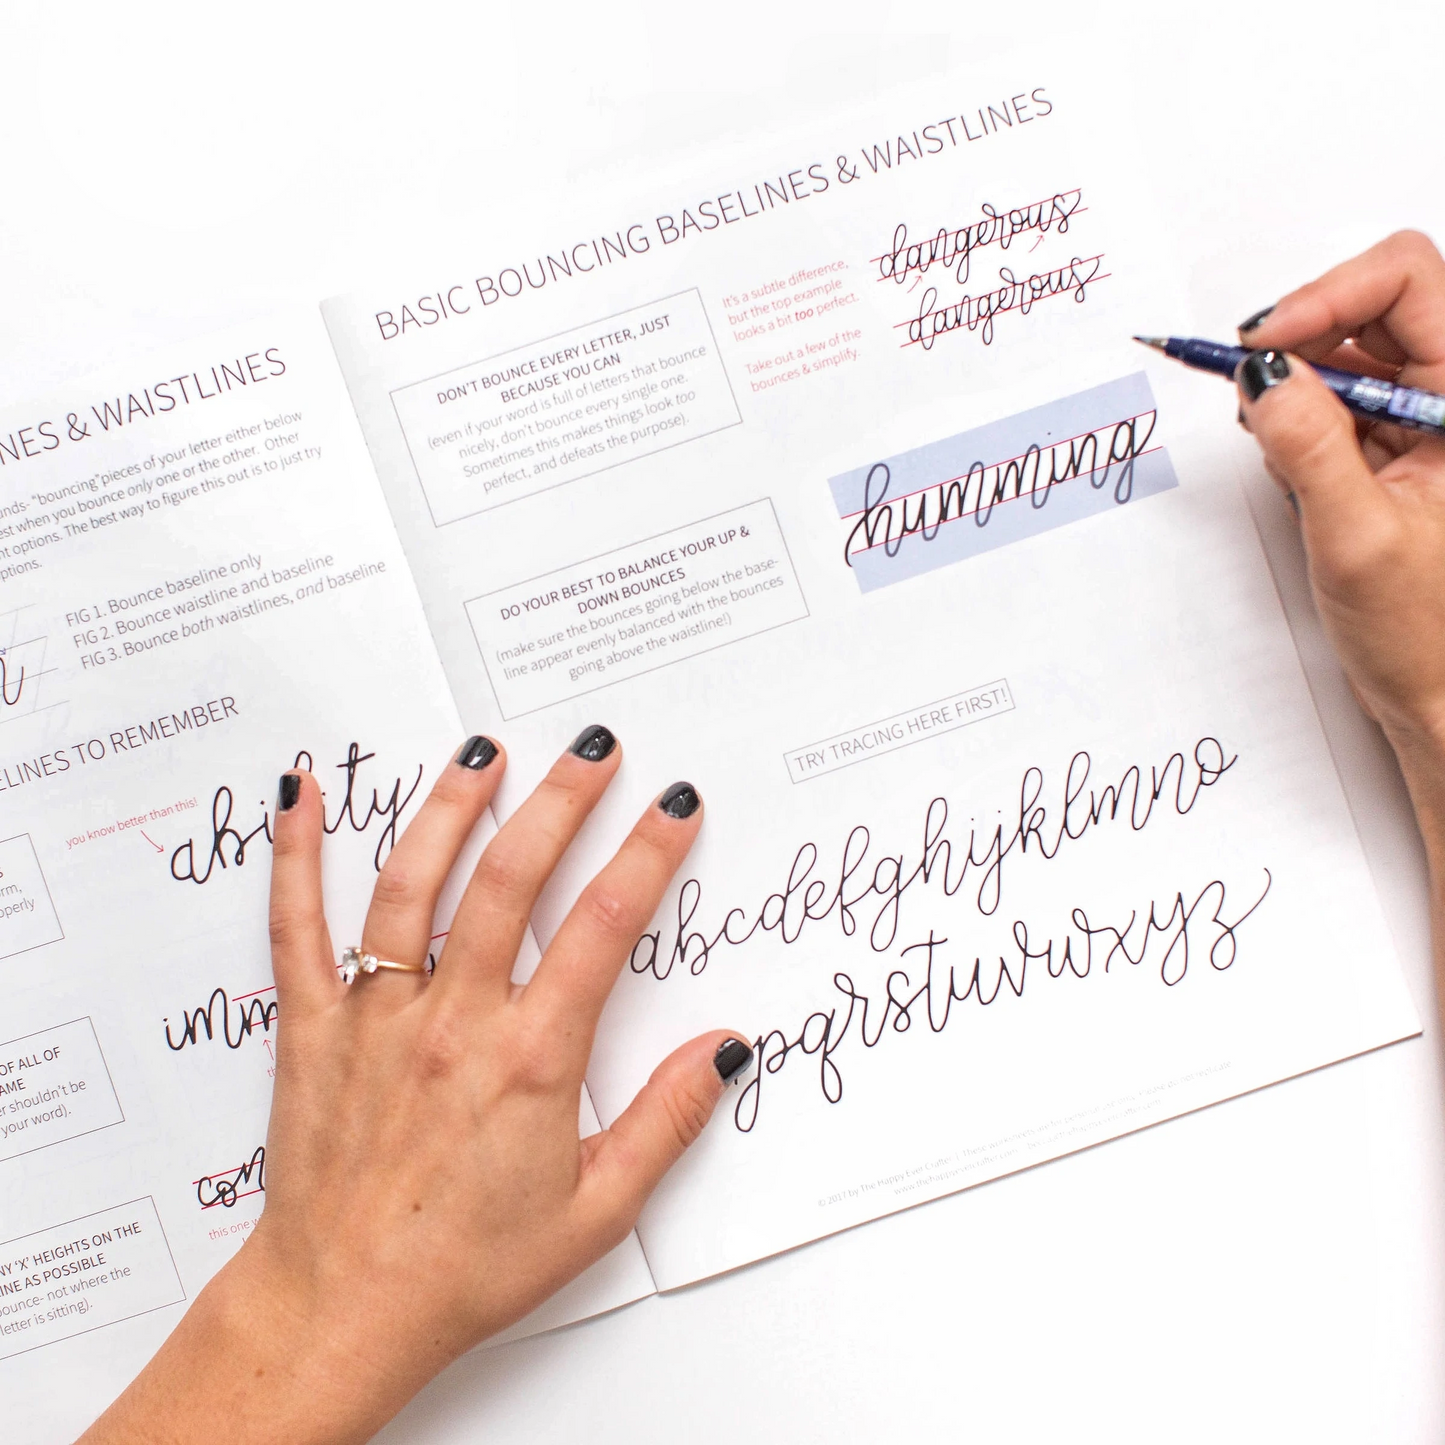 NES & WAISTLINES
unds- "bouncing" pieces of your letter either below
est when you bounce only one or the other. Other
nt options. The best way to figure this out is to just try
ptions.
FIG 1. Bounce baseline only
FIG 2. Bounce waistline and baseline
FIG 3. Bounce both waistlines, and baseline
ELINES TO REMEMBER
you know better than this!
ability
rm,
operly
imm
OF ALL OF
AME
er shouldn't be
your word).
con
this one w
NY 'X' HEIGHTS ON THE
INE AS POSSIBLE
bounce- not where the
letter is sitting).
BASIC BOUNCING BASELINES & WAISTLINES
DON'T BOUNCE EVERY LETTER, JUST
BECAUSE YOU CAN
(even if your word is full of letters that bounce
nicely, don't bounce every single one.
Sometimes this makes things look too
perfect, and defeats the purpose).
It's a subtle difference,
but the top example
looks a bit too perfect.
Take out a few of the
bounces & simplify.
dangerous
dangerous
DO YOUR BEST TO BALANCE YOUR UP &
DOWN BOUNCES
(make sure the bounces going below the base-
line appear evenly balanced with the bounces
going above the waistline!)
humming
TRY TRACING HERE FIRST!
abcdefghijklmno
pqrstuvwxyz
© 2017 by The Happy Ever Crafter | These worksheets are for personal use only. Please do not replicate
www.thehappyevercrafter.com